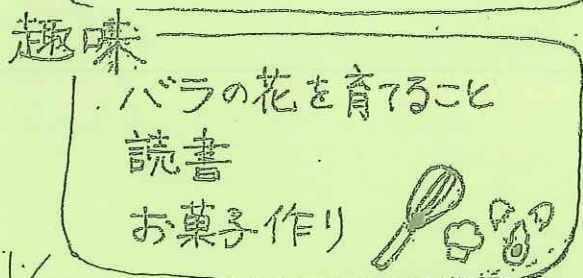 趣味
バラの花を育てること
読書
お菓子作り